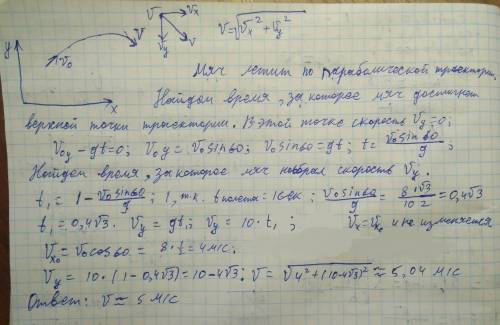 y
x
v₀
v
v
vₓ
v_y
v
v=√(vₓ²+v_y²)
Мяч летит по параболической траектории.
Найдем время, за которое мяч достигнет
верхней точки траектории. В этой точке скорость v_y=0;
v₀y-gt=0; v₀y=v₀sin60; v₀sin60=gt; t=v₀sin60/g;
Найдем время, за которое мяч набрал скорость v_y.
t₁=1-v₀sin60/g; 1, т.к. t полета=1сек; v₀sin60/g=8·√3/10·2=0,4√3
t₁=0,4√3. v_y=gt₁; v_y=10·t₁; vₓ=vₓ₀ и не изменяется
vₓ₀=v₀cos60=8·½=4м/с.
v_y=10·(1-0,4√3)=10-4√3; v=√(4²+(10-4√3)²)≈5,04 м/с
Ответ: v≃5 м/с